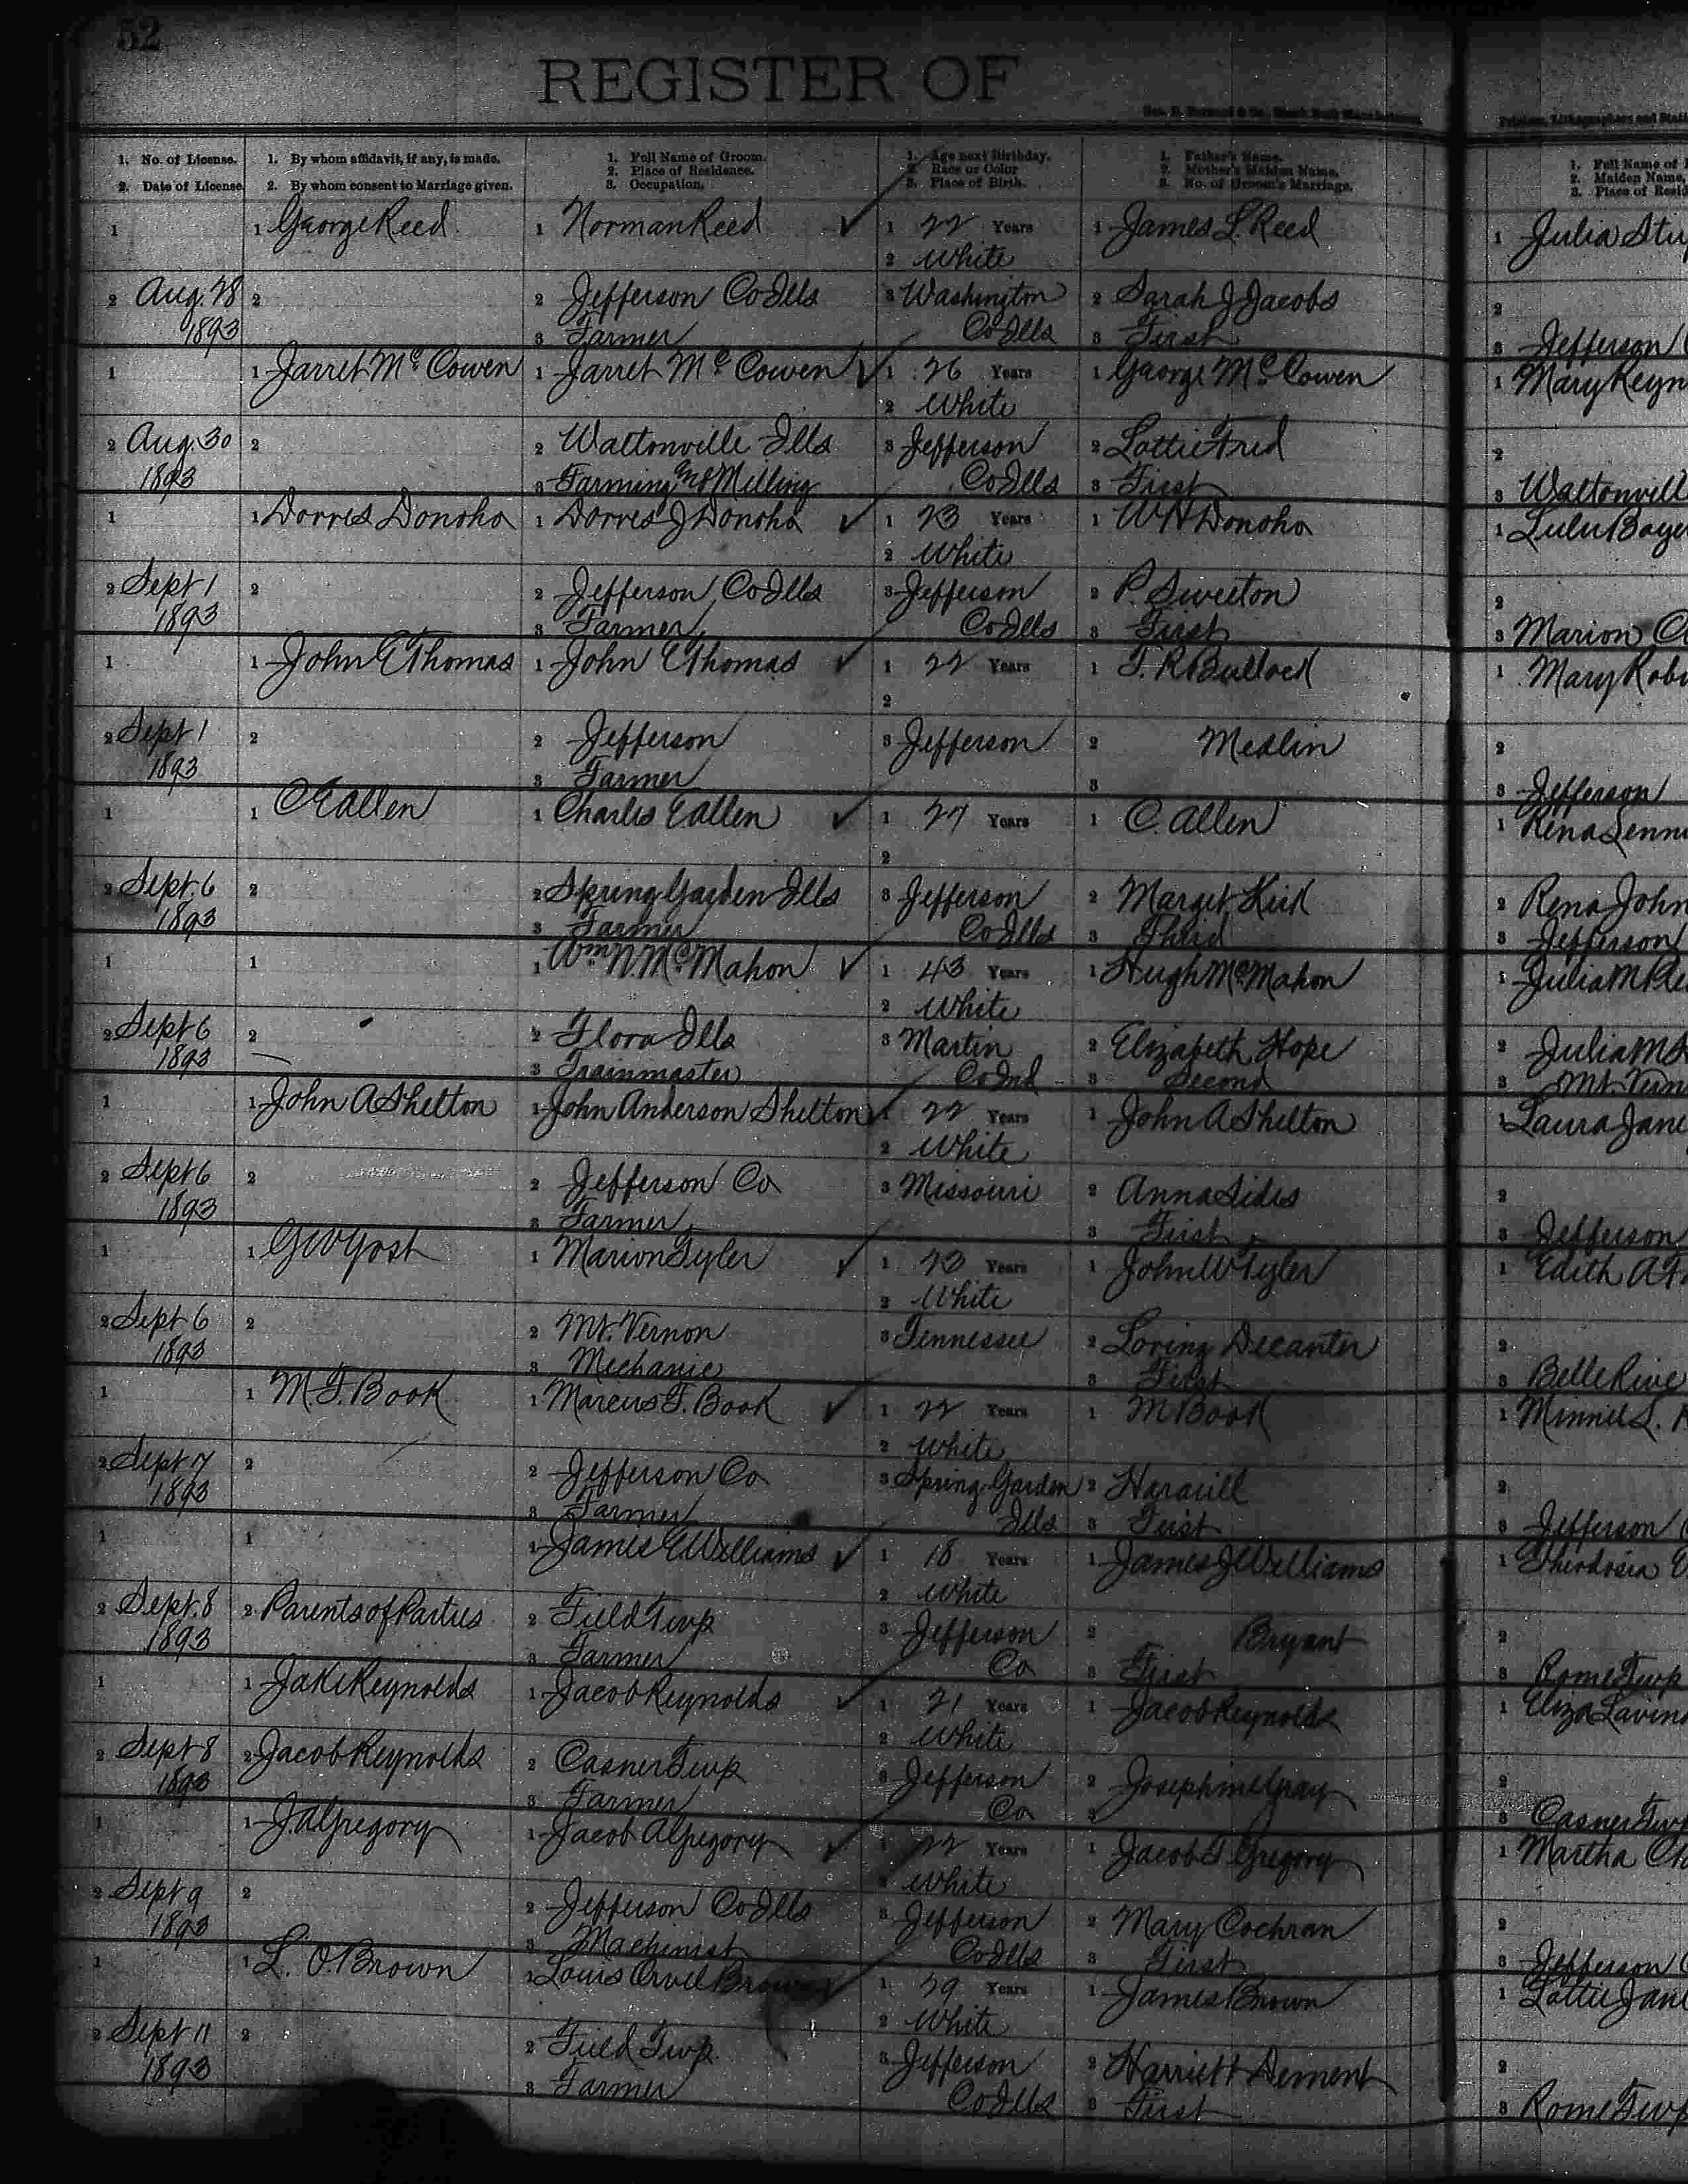 52
REGISTER OF
1. No. of License.
2. Date of License.
1. By whom affidavit, if any, is made.
2. By whom consent to Marriage given.
1. Full Name of Groom.
2. Place of Residence.
3. Occupation.
1. Age next Birthday.
2. Race or Color
3. Place of Birth.
1. Father's Name.
2. Mother's Maiden Name.
3. No. of Groom's Marriage.
1. Full Name of
2. Maiden Name,
3. Place of Resid
1 1 George Reed 1 Norman Reed ✓ 1 22 Years 1 James L. Reed 1 Julia
2 White
2 Aug. 28 2 2 Jefferson Co Ills 3 Washington 2 Sarah J Jacobs 2
1893 3 Farmer Co Ills 3 First 3 Jefferson
1 1 Jarret Mc Cowen 1 Jarret Mc Cowen ✓ 1 26 Years 1 George Mc Cowen 1 Mary Reyn
2 White
2 Aug. 30 2 2 Waltonville Ills 3 Jefferson 2 Lottie Fred 2
1893 3 Farming and Milling Co Ills 3 First 3 Waltonvill
1 1 Dorres Donoho 1 Dorres J Donoho ✓ 1 23 Years 1 W H Donoho 1 Lulu
2 White
2 Sept 1 2 2 Jefferson Co Ills 3 Jefferson 2 P. Sweeton 2
1893 3 Farmer Co Ills 3 First 3 Marion C
1 1 John E Thomas 1 John E Thomas ✓ 1 22 Years 1 T. R Bullock 1 Mary Robi
2
2 Sept 1 2 2 Jefferson 3 Jefferson 2 Medlin 2
1893 3 Farmer 3 3 Jefferson
1 1 C E Allen 1 Charles E Allen ✓ 1 27 Years 1 C. Allen 1 Rena
2
2 Sept. 6 2 2 Spring Garden Ills 3 Jefferson 2 Marget Kirk 2 Rena John
1893 3 Farmer Co Ills 3 Third 3 Jefferson
1 1 1 Wm N. Mc Mahon ✓ 1 43 Years 1 Hugh Mc Mahon 1 Julia M
2 White
2 Sept 6 2 2 Flora Ills 3 Martin 2 Elizabeth Hope 2 Julia M
1893 3 Trainmaster Co Ind 3 Second 3 Mt. Vern
1 1 John A Shelton 1 John Anderson Shelton ✓ 1 22 Years 1 John A Shelton 1 Laura Jane
2 White
2 Sept 6 2 2 Jefferson Co 3 Missouri 2 Anna Sides 2
1893 3 Farmer 3 First 3 Jefferson
1 1 G W Yost 1 Marion Tyler ✓ 1 23 Years 1 John W Tyler 1 Edith A
2 White
2 Sept 6 2 2 Mt. Vernon 3 Tennessee 2 Loring Decanter 2
1893 3 Mechanic 3 First 3 Belle Rive
1 1 M. F. Book 1 Marcus F. Book ✓ 1 22 Years 1 M Book 1 Minnie L.
2 White
2 Sept 7 2 2 Jefferson Co 3 Spring Garden 2 Haravill 2
1893 3 Farmer Ills 3 First 3 Jefferson
1 1 1 James E Williams ✓ 1 18 Years 1 James J Williams 1 Theodosia
2 White
2 Sept. 8 2 Parents of Parties 2 Field Twp 3 Jefferson 2 Bryant 2
1893 3 Farmer Co 3 First 3 Rome Twp
1 1 Jake Reynolds 1 Jacob Reynolds ✓ 1 21 Years 1 Jacob Reynolds 1 Eliza Lavin
2 White
2 Sept 8 2 Jacob Reynolds 2 Casner Twp 3 Jefferson 2 Josephine Gray 2
1893 3 Farmer Co 3 3 Casner Twp
1 1 J. A Gregory 1 Jacob A Gregory ✓ 1 22 Years 1 Jacob T Gregory 1 Martha
2 White
2 Sept 9 2 2 Jefferson Co Ills 3 Jefferson 2 Mary Cochran 2
1893 3 Machinist Co Ills 3 First 3 Jefferson
1 1 L. O. Brown 1 Louis Orvel Brown ✓ 1 29 Years 1 James Brown 1 Lottie Jane
2 White
2 Sept 11 2 2 Field Twp. 3 Jefferson 2 Harriett Dement 2
1893 3 Farmer Co Ills 3 First 3 Rome Twp